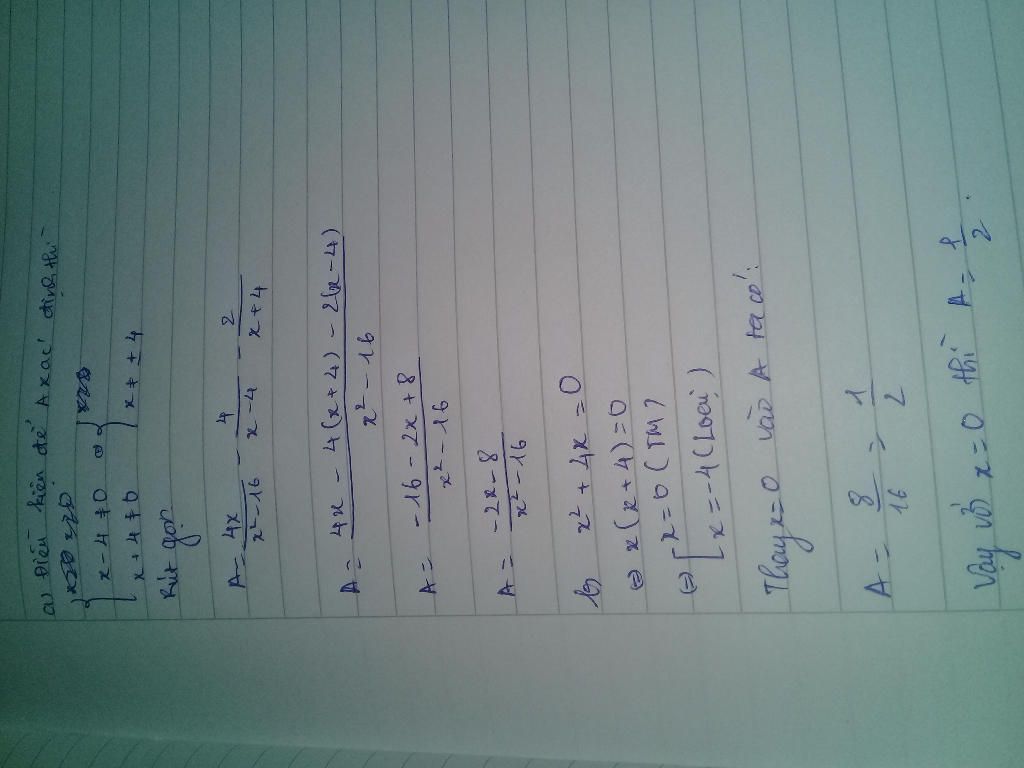 a) Điều kiện để A xác định thì
{ x - 4 ≠ 0 ⇔ {
x + 4 ≠ 0 x ≠ ± 4
Rút gọn
A = 4x/(x² - 16) - 4/(x - 4) - 2/(x + 4)
A = (4x - 4(x + 4) - 2(x - 4))/(x² - 16)
A = (-16 - 2x + 8)/(x² - 16)
A = (-2x - 8)/(x² - 16)
b, x² + 4x = 0
⇔ x(x + 4) = 0
⇔ [ x = 0 (TM)
[ x = -4 (Loại)
Thay x = 0 vào A ta có:
A = 8/16 = 1/2
Vậy với x = 0 thì A = 1/2.